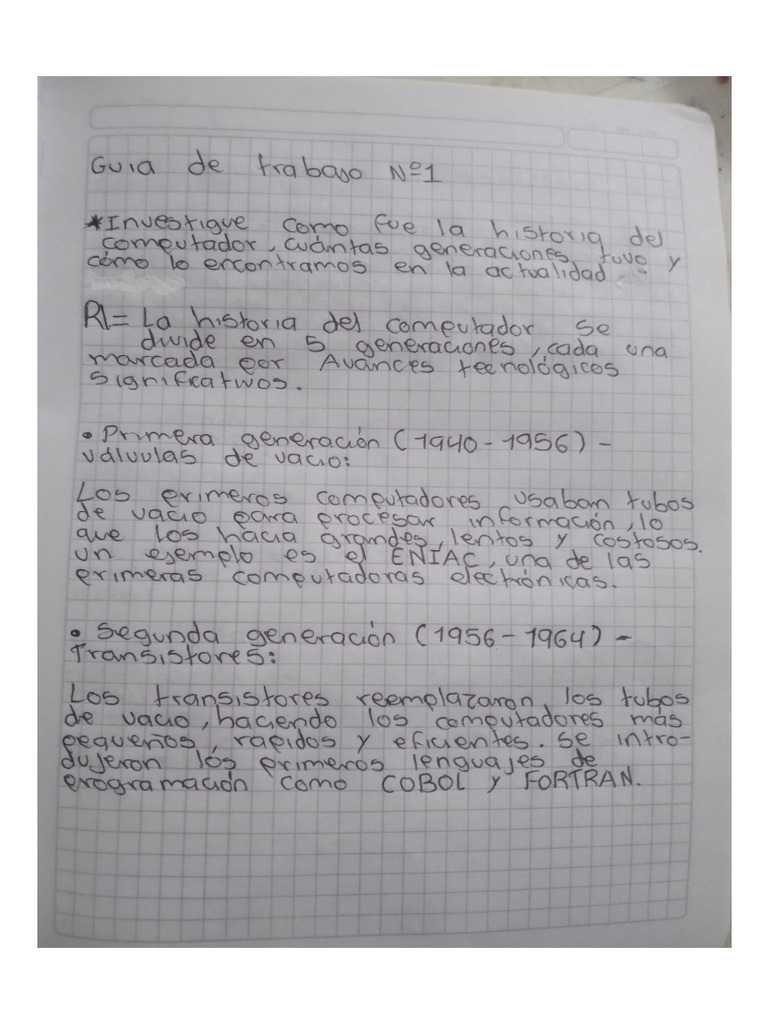 Guia de trabajo Nº1
*Investigue como fue la historia del
computador, cuántas generaciones tuvo y
cómo lo encontramos en la actualidad.
R/= La historia del computador se
divide en 5 generaciones, cada una
marcada por Avances tecnológicos
significativos.
• Primera generación (1940-1956) -
válvulas de vacio:
Los primeros computadores usaban tubos
de vacio para procesar información, lo
que los hacia grandes, lentos y costosos.
un ejemplo es el ENIAC, una de las
primeras computadoras electrónicas.
• Segunda generación (1956-1964) -
Transistores:
Los transistores reemplazaron los tubos
de vacio, haciendo los computadores más
pequeños, rapidos y eficientes. se intro-
dujeron los primeros lenguajes de
programación como COBOL y FORTRAN.